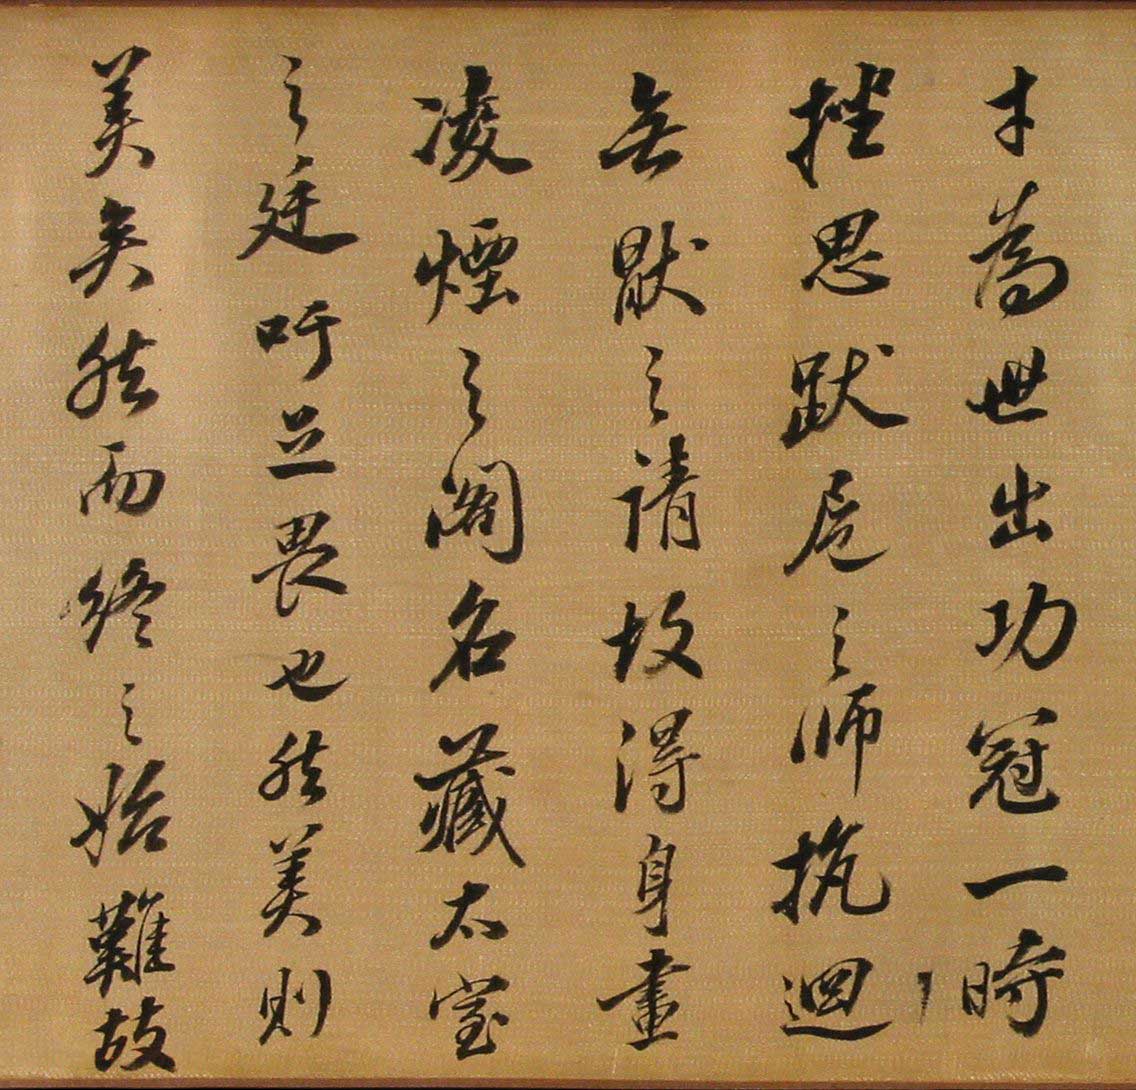 才為世出功冠一時
挫思跋扈之師抗迴
無猒之請故得身畫
凌煙之閣名藏太室
之廷吁足畏也然美則
美矣然而終之始難故